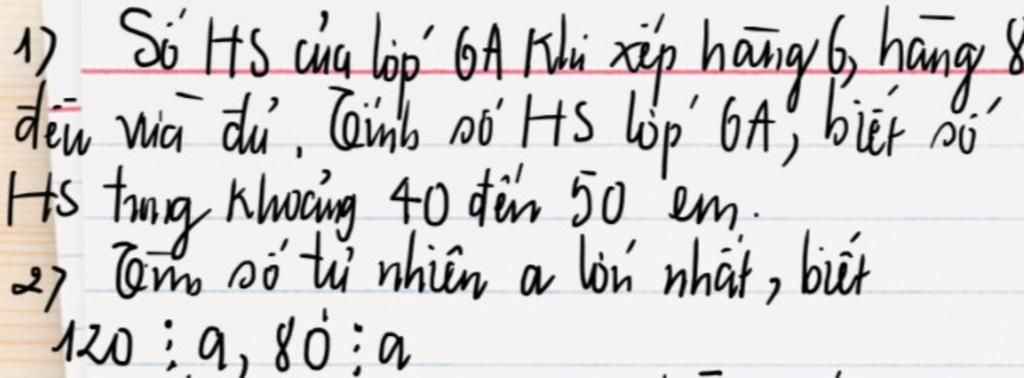 1) Số HS của lớp 6A khi xếp hàng 6, hàng 8
đều vừa đủ. Tính số HS lớp 6A, biết số
HS trong khoảng 40 đến 50 em.
2) Tìm số tự nhiên a lớn nhất, biết
120 ⋮ a, 80 ⋮ a